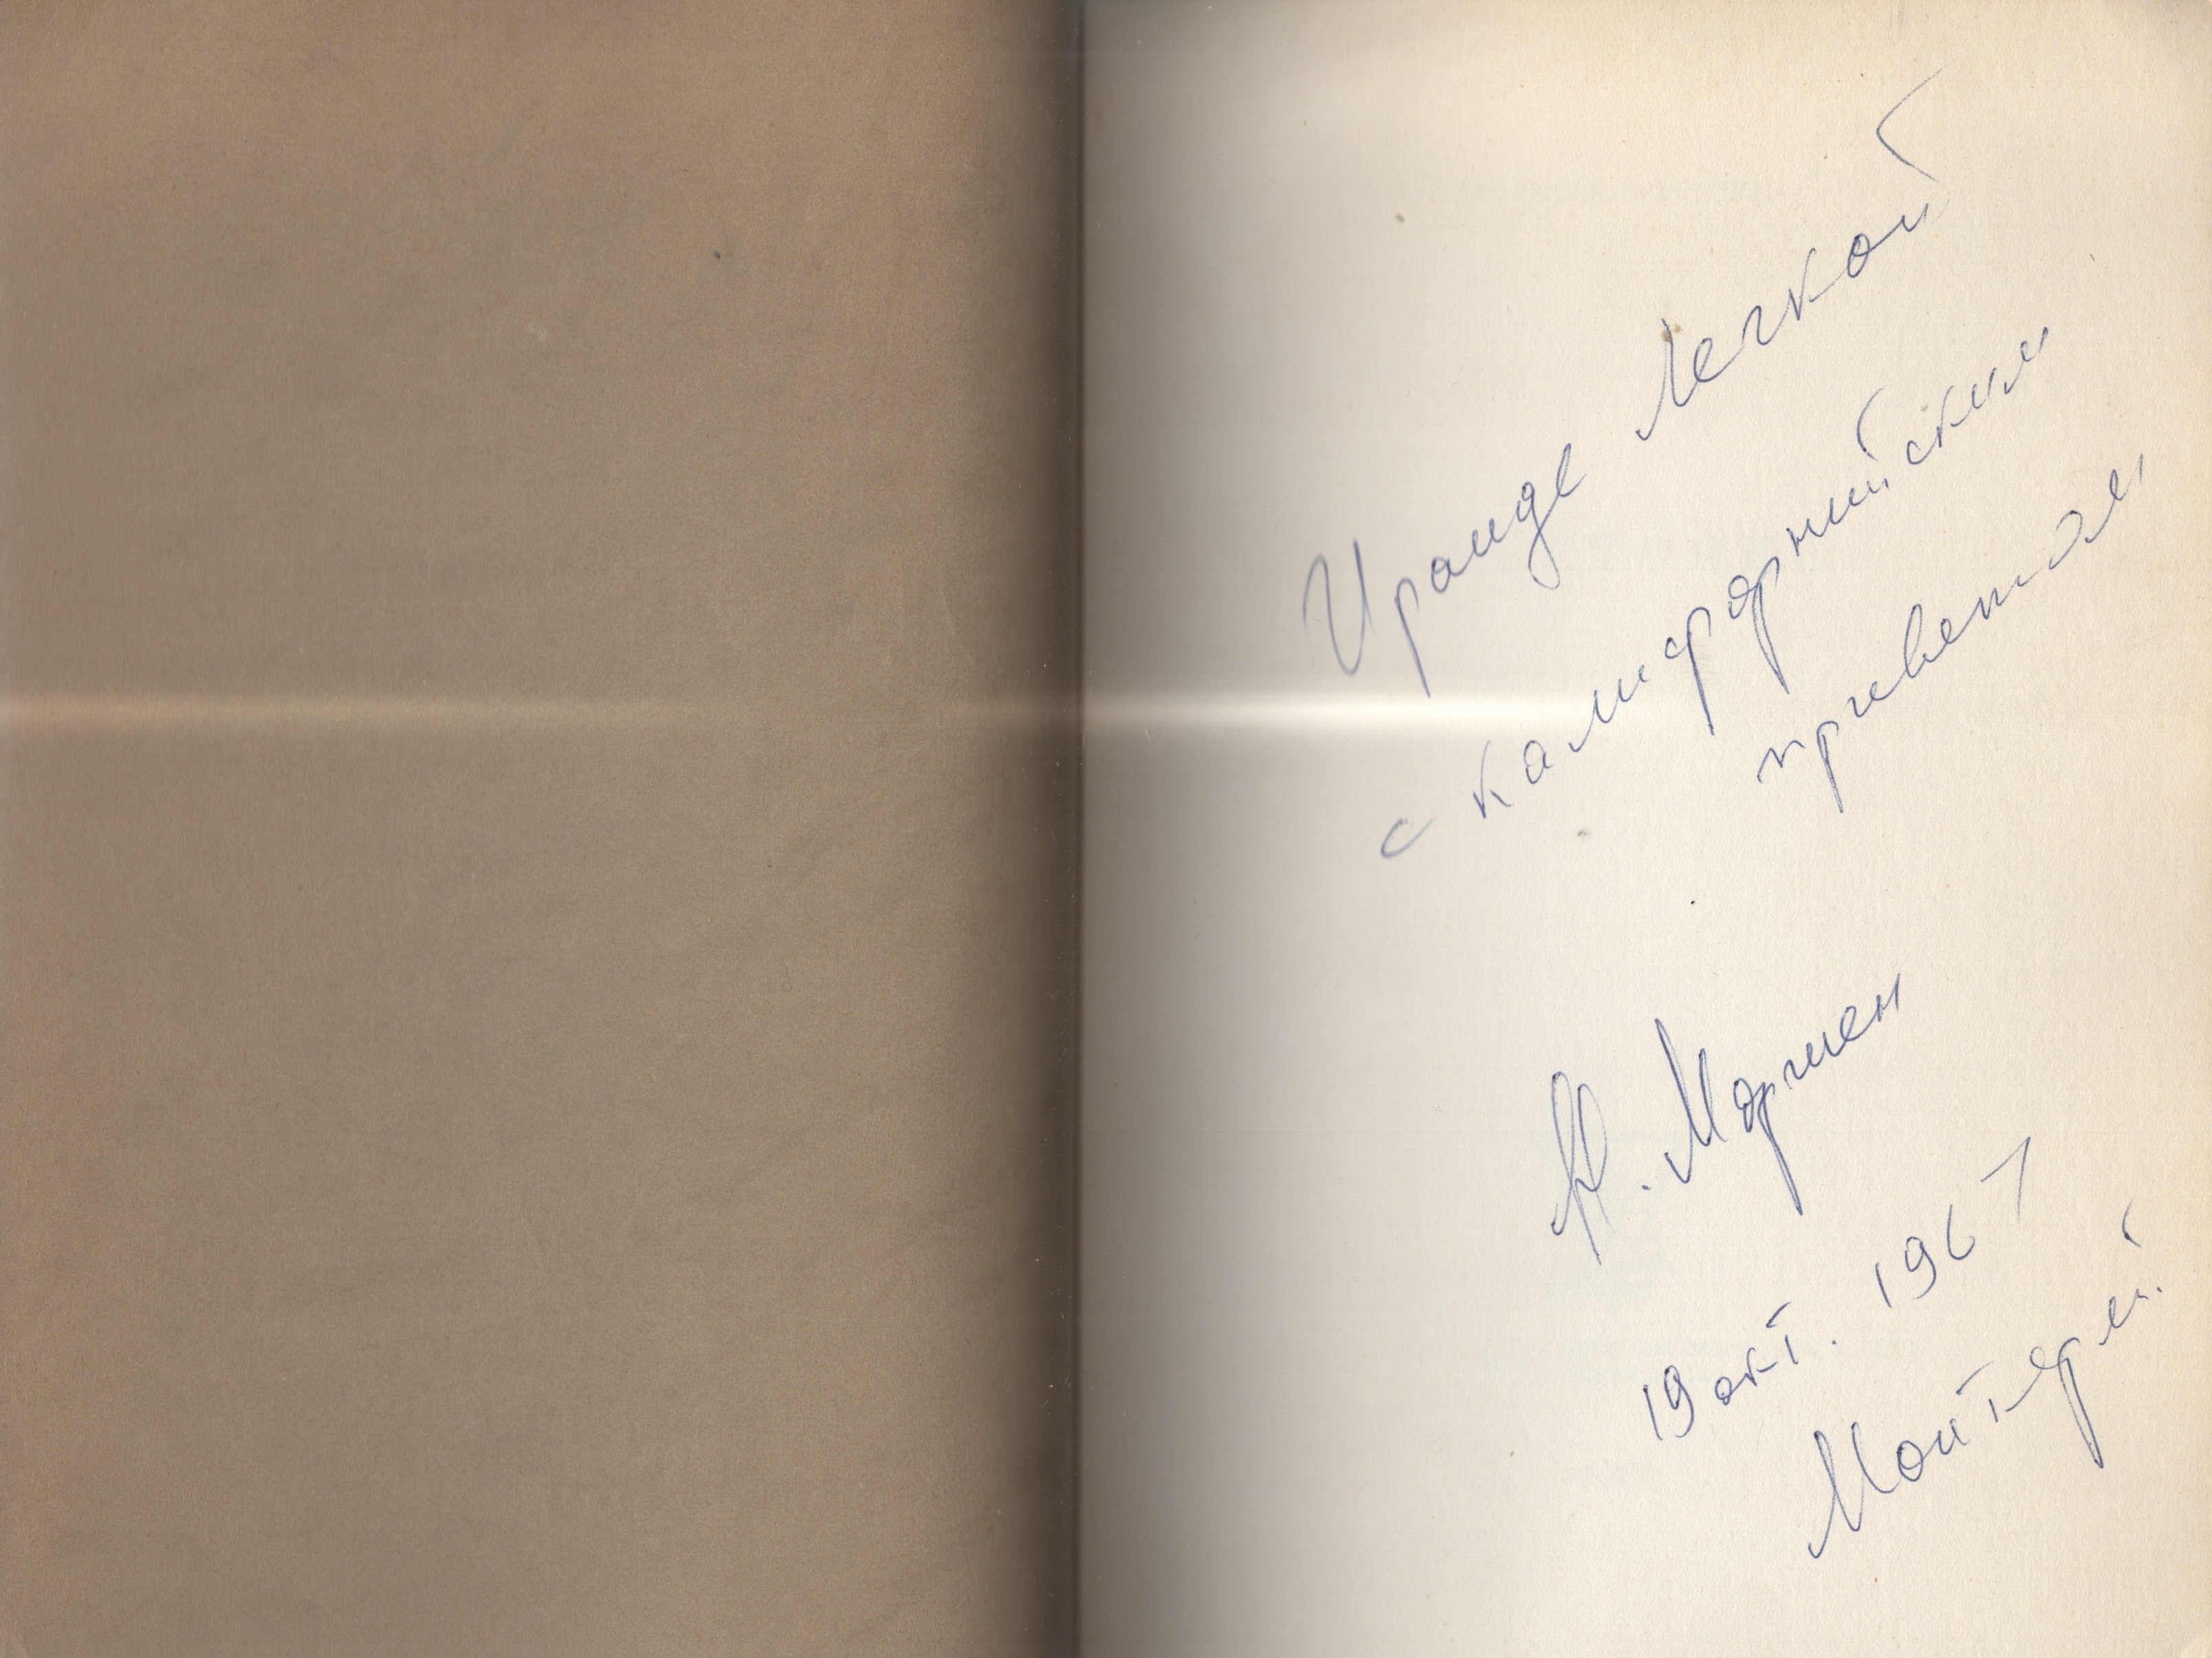 Ираиде Легкой
с калифорнийским
приветом
Н. Моршен
19 окт. 1967
Монтерей.